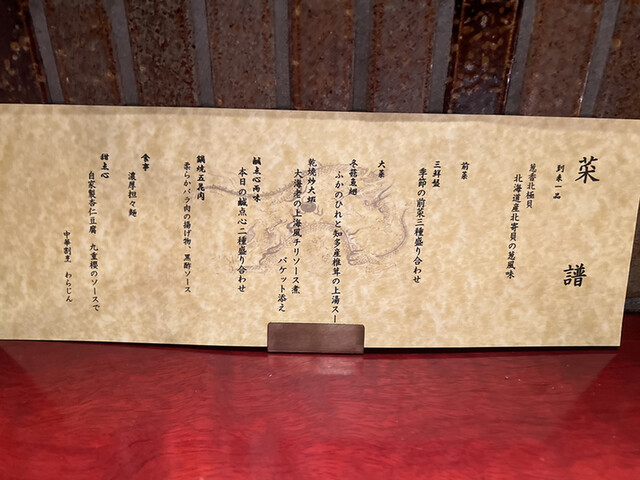 菜譜
到来一品
葱香北極貝
北海道産北寄貝の葱風味
前菜
三拼盤
季節の前菜三種盛り合わせ
大菜
冬菇魚翅
ふかのひれと知多産椎茸の上湯スー
乾焼炒大蝦
大海老の上海風チリソース煮
バケット添え
鹹点心両味
本日の鹹点心二種盛り合わせ
鍋焼五花肉
柔らかバラ肉の揚げ物、黒酢ソース
食事
濃厚担々麺
甜点心
自家製杏仁豆腐 九重櫻のソースで
中華割烹 わらじん